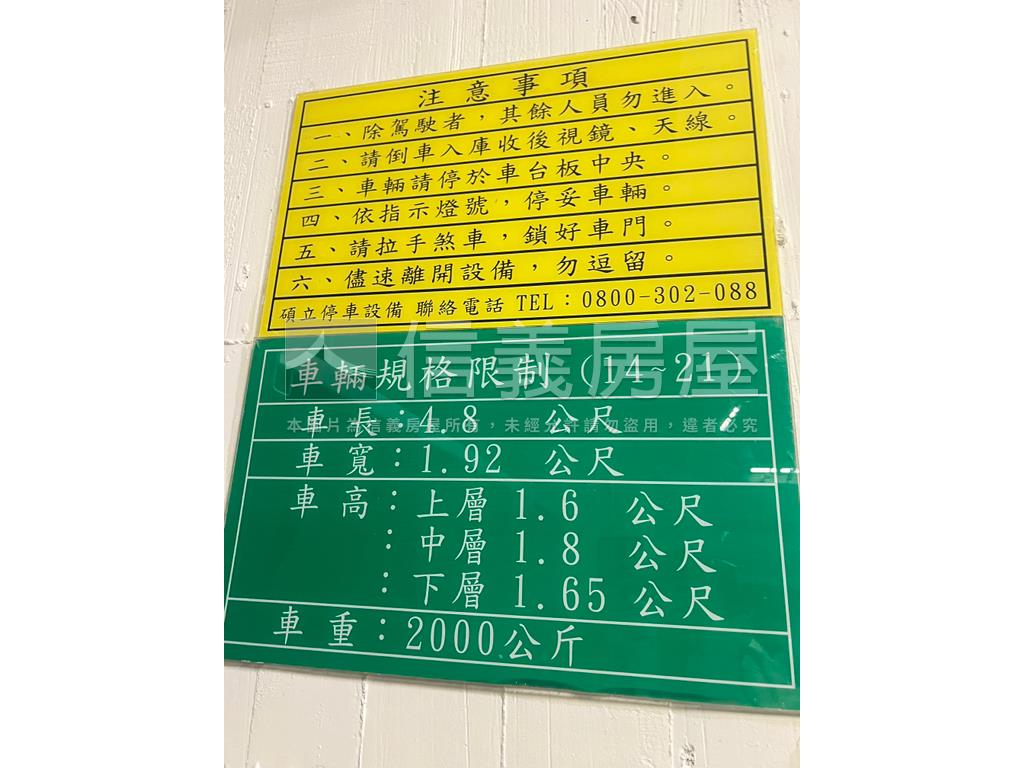 注意事項
一、除駕駛者，其餘人員勿進入。
二、請倒車入庫收後視鏡、天線。
三、車輛請停於車台板中央。
四、依指示燈號，停妥車輛。
五、請拉手煞車，鎖好車門。
六、儘速離開設備，勿逗留。
碩立停車設備 聯絡電話 TEL：0800-302-088
信義房屋
車輛規格限制（14~21）
車長：4.8 公尺
本圖片為信義房屋所有，未經允許請勿盜用，違者必究
車寬：1.92 公尺
車高：上層 1.6 公尺
：中層 1.8 公尺
：下層 1.65 公尺
車重：2000公斤